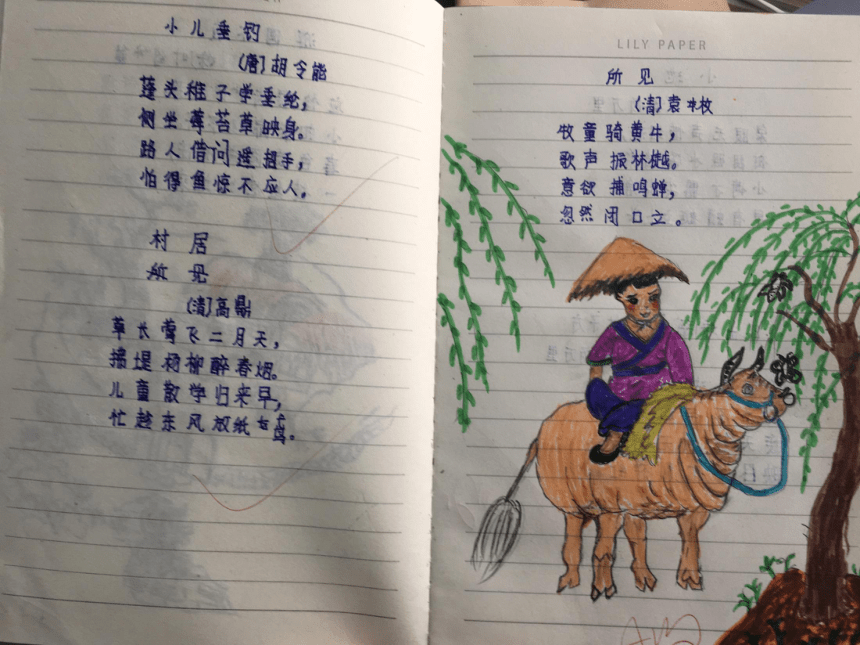 小儿垂钓
(唐)胡令能
蓬头稚子学垂纶,
侧坐莓苔草映身。
路人借问遥招手,
怕得鱼惊不应人。
村居
所见
(清)高鼎
草长莺飞二月天,
拂堤杨柳醉春烟。
儿童散学归来早,
忙趁东风放纸鸢。
LILY PAPER
所见
(清)袁枚
牧童骑黄牛,
歌声振林樾。
意欲捕鸣蝉,
忽然闭口立。